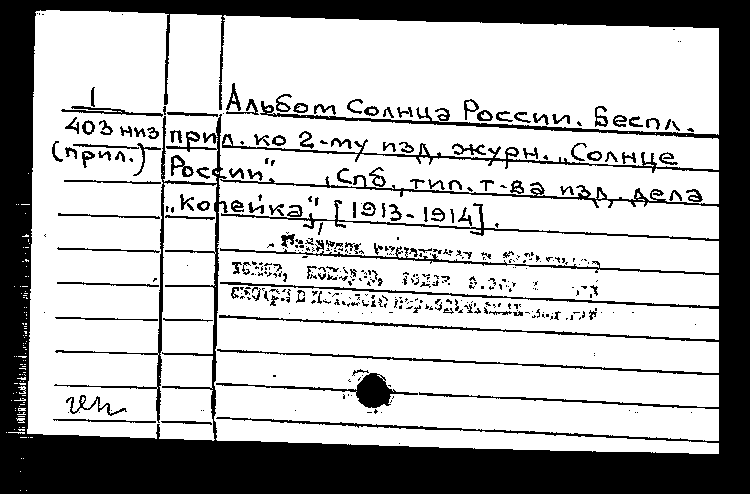 1
Альбом Солнца России. Беспл.
403 низ прил. ко 2-му изд. журн. „Солнце
(прил.) России“. Спб., тип. т-ва изд. дела
„Копейка“, [1913-1914].
томов, номеров, годов
смотри в